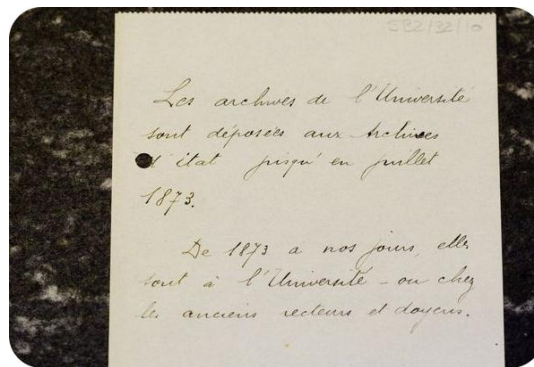 592/32/10
Les archives de l'Université
sont déposées aux Archives
d'état jusqu'en juillet
1873.
De 1873 a nos jours, elles
sont à l'Université - ou chez
les anciens recteurs et doyens.